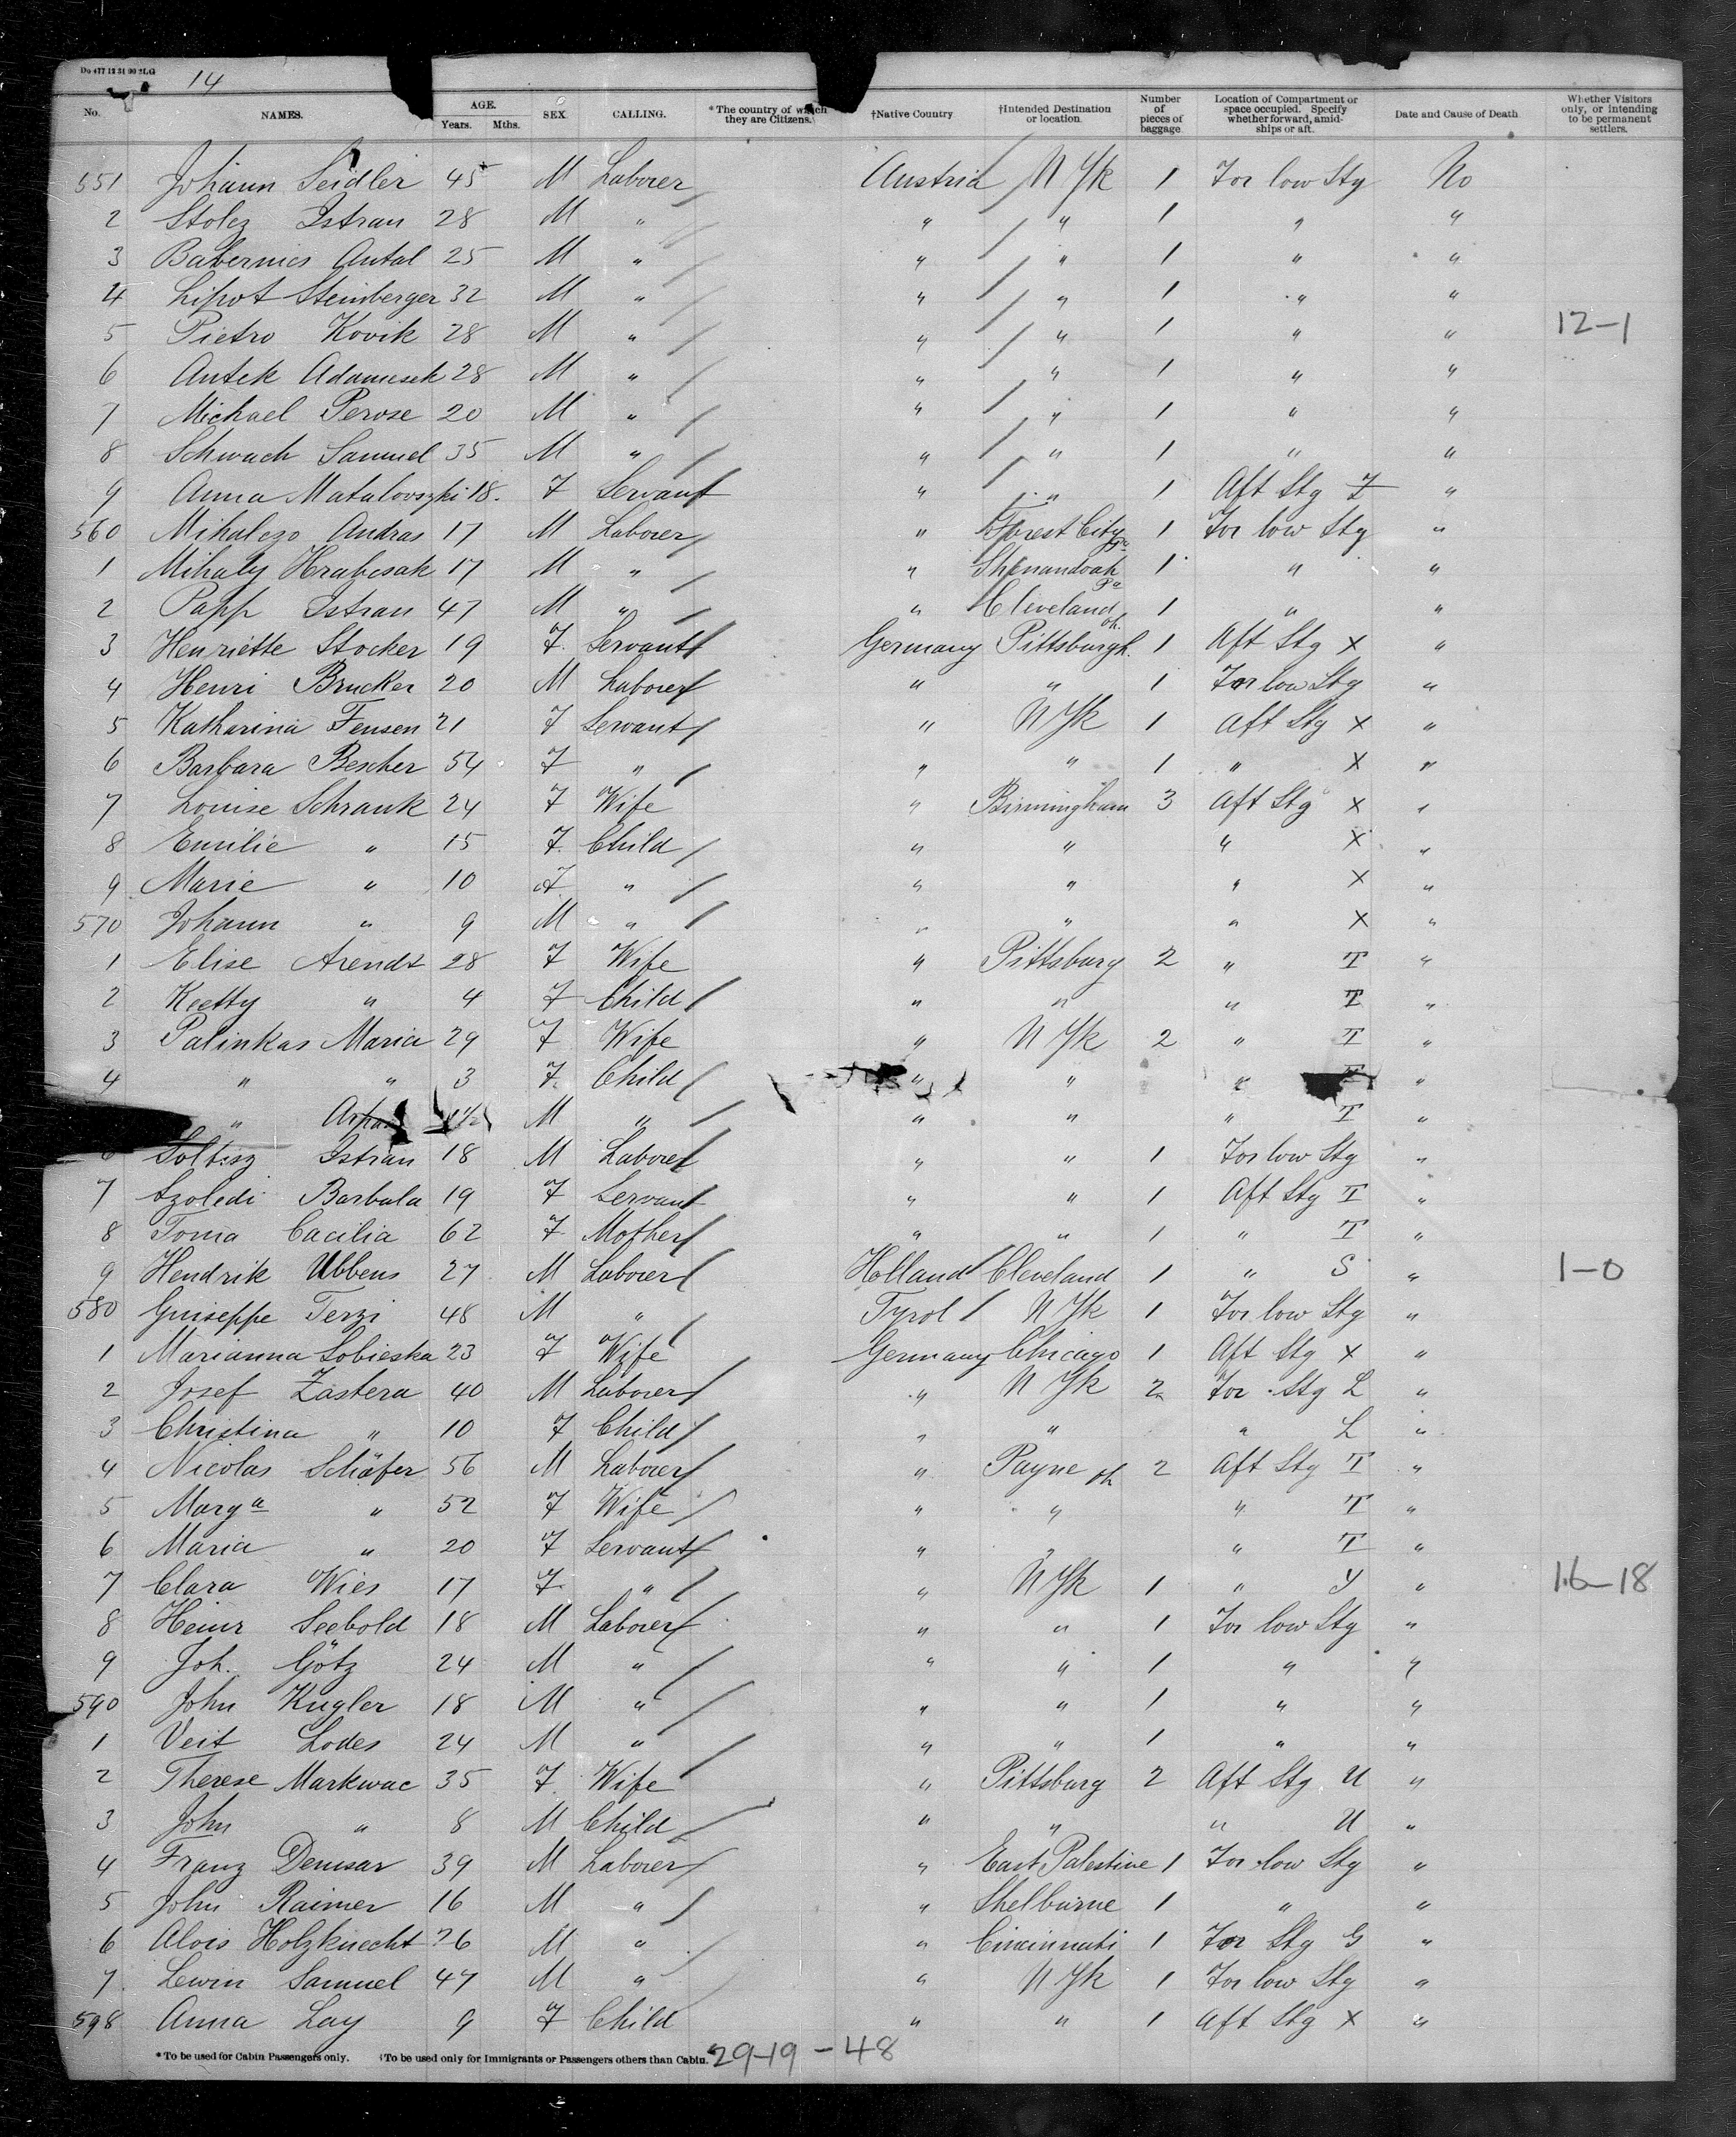 Do 477 12 31 90 2LG
14
No. NAMES. AGE. Years. Mths. SEX. CALLING. *The country of which they are Citizens. †Native Country †Intended Destination or location. Number of pieces of baggage Location of Compartment or space occupied. Specify whether forward, amidships or aft. Date and Cause of Death Whether Visitors only, or intending to be permanent settlers.
551 Johann Seidler 45 M Laborer Austria N Yk 1 For low Stg No
2 Stolcz Istran 28 M " " " 1 " "
3 Babernics Antal 25 M " " " 1 " "
4 Lipot Steinberger 32 M " " " 1 " "
5 Pietro Kovik 28 M " " " 1 " " 12-1
6 Antek Adamesek 28 M " " " 1 " "
7 Michael Perose 20 M " " " 1 " "
8 Schwach Samuel 35 M " " " 1 " "
9 Anna Matalovszki 18 F Servant " " 1 Aft Stg "
560 Mihalczo Andras 17 M Laborer " Forest City Pa 1 For low Stg "
1 Mihaly Hrabcsak 17 M " " Shenandoah Pa 1 " "
2 Papp Istran 47 M " " Cleveland Oh. 1 " "
3 Henriette Stocker 19 F. Servant Germany Pittsburgh. 1 Aft Stg X "
4 Henri Brucker 20 M Laborer " " 1 For low Stg "
5 Katharina Fensen 21 F Servant " N Yk 1 Aft Stg X "
6 Barbara Bescher 54 F " " " 1 " X "
7 Louise Schrank 24 F Wife " Birmingham 3 Aft Stg X "
8 Emilie " 15 F Child " " " X "
9 Marie " 10 F " " " " X "
570 Johann " 9 M " " " " X "
1 Elise Arendt 28 F Wife " Pittsburg 2 " T "
2 Keetty " 4 F Child " " " T "
3 Palinkas Maria 29 F Wife " N Yk 2 " T "
4 " " 3 F. Child " " " T "
" M " " " " T "
6 Soltisz Istran 18 M Laborer " " 1 For low Stg "
7 Szoledi Barbala 19 F Servant " " 1 Aft Stg T "
8 Toma Cacilia 62 F Mother " " 1 " T "
9 Hendrik Ubbens 27 M Laborer Holland Cleveland 1 " S " 1-0
580 Guiseppe Terzi 48 M " Tyrol N Yk 1 For low Stg "
1 Marianna Sobieska 23 F Wife Germany Chicago 1 Aft Stg X "
2 Josef Zastera 40 M Laborer " N Yk 2 For Stg L "
3 Christina " 10 F Child " " " L "
4 Nicolas Schäfer 56 M Laborer " Payne Oh 2 Aft Stg T "
5 Marga " 52 F Wife " " " T "
6 Maria " 20 F Servant " " " T "
7 Clara Wies 17 F. " " N Yk 1 " Y " 16-18
8 Heinr Seebold 18 M Laborer " " 1 For low Stg "
9 Joh. Götz 24 M " " " 1 " "
590 John Kugler 18 M " " " 1 " "
1 Veit Lodes 24 M " " " 1 " "
2 Therese Markwac 35 F Wife " Pittsburg 2 Aft Stg U "
3 John " 8 M Child " " " U "
4 Franz Demsar 39 M Laborer " East Palestine 1 For low Stg "
5 John Raimer 16 M " " Shelburne 1 " "
6 Alois Holzknecht 26 M " " Cincinnati 1 For Stg G "
7 Lewin Samuel 47 M " " N Yk 1 For low Stg "
598 Anna Lay 9 F Child " " 1 Aft Stg X "
*To be used for Cabin Passengers only. †To be used only for Immigrants or Passengers others than Cabin. 29-19 - 48